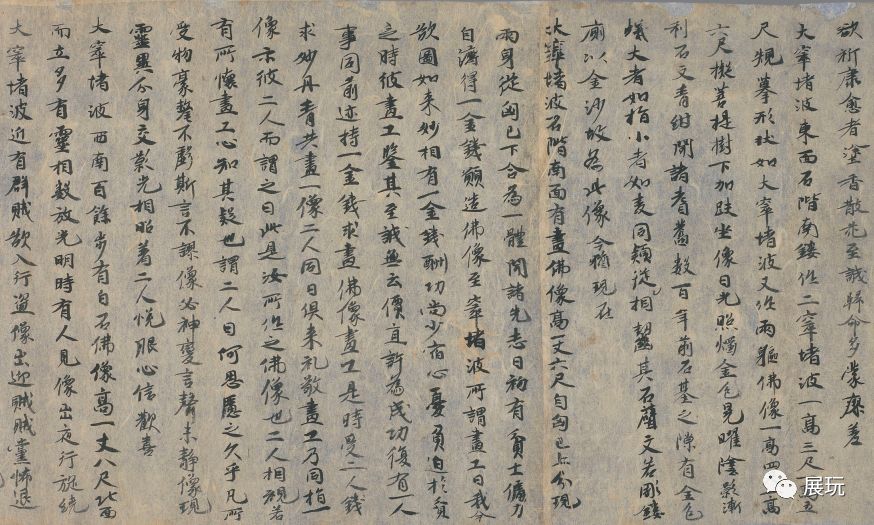 欲祈康愈者塗香散花至誠歸命多蒙瘳差
大窣堵波東面石階南鏤作二窣堵波一高三尺一高五
尺規摹形狀如大窣堵波又作兩軀佛像一高四尺一高
六尺擬菩提樹下加趺坐像日光照燭金色晃曜陰影漸
利石文青紺聞諸耆舊數百年前石基之隙有金色
蟻大者如指小者如麦同類從相齧其石壁文若彫鏤
廁以金沙故為此像今猶現在
大窣堵波石階南面有畫佛像高一丈六尺自匈已上分現
兩身從匈已下合為一體聞諸先志曰初有貧士傭力
自濟得一金錢願造佛像至窣堵波所謂畫工曰我今
欲圖如来妙相有一金錢酬功尚少宿心憂負迫於貧
之時彼畫工鑒其至誠無云價直許為成功復有一人
事同前迹持一金錢求畫佛像畫工是時受二人錢
求妙丹青共畫一像二人同日俱来礼敬畫工乃同指一
像示彼二人而謂之曰此是汝所作之佛像也二人相視若
有所懷畫工心知其疑也謂二人曰何思慮之久乎凡所
受物豪釐不虧斯言不謬像必神變言聲未靜像現
靈異分身交影光相照著二人悅服心信歡喜
大窣堵波西南百餘步有白石佛像高一丈八尺北面
而立多有靈相數放光明時有人見像出夜行旋繞
大窣堵波近有群賊欲入行盜像出迎賊賊黨怖退
展玩